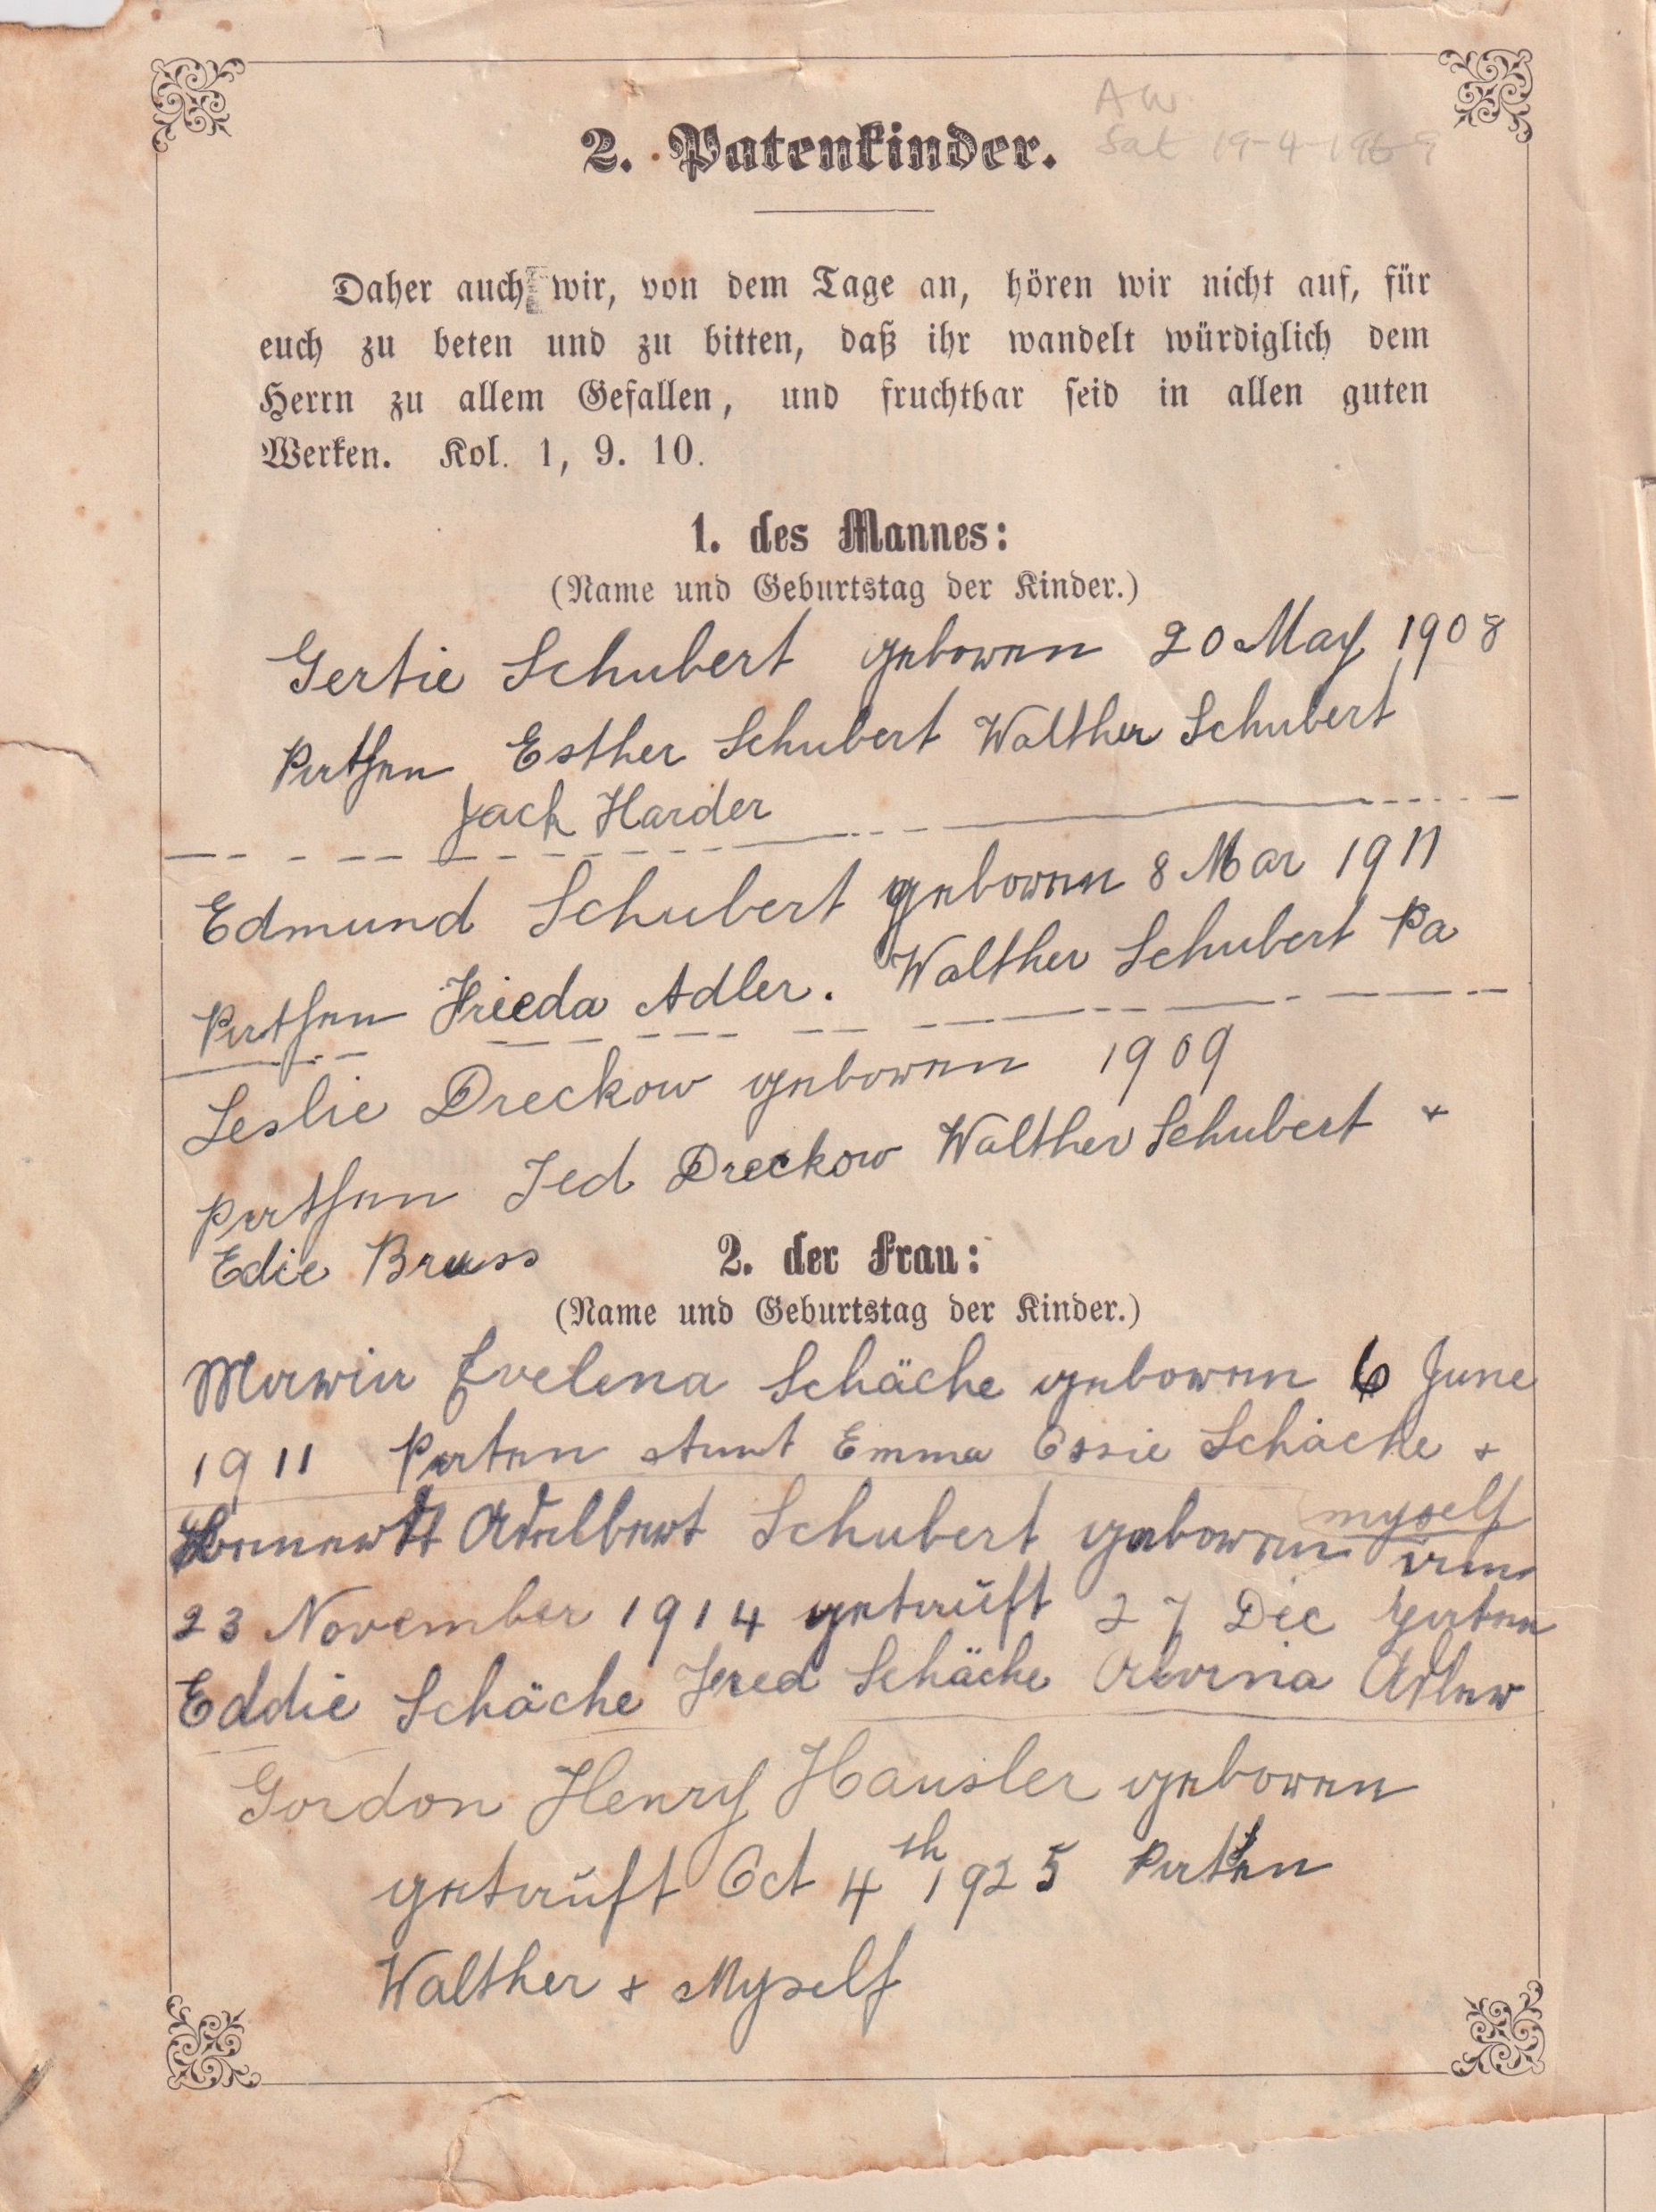 AW
Sat 19-4-1969
2. Patenkinder.
Daher auch wir, von dem Tage an, hören wir nicht auf, für
euch zu beten und zu bitten, daß ihr wandelt würdiglich dem
Herrn zu allem Gefallen, und fruchtbar seid in allen guten
Werken. Kol. 1, 9. 10.
1. des Mannes:
(Name und Geburtstag der Kinder.)
Gertie Schubert geboren 20 May 1908
Pathen Esther Schubert Walther Schubert
Jack Harder
Edmund Schubert geboren 8 Mar 1911
Pathen Frieda Adler. Walther Schubert Pa
Leslie Dreckow geboren 1909
Pathen Ted Dreckow Walther Schubert +
Edie Bruss
2. der Frau:
(Name und Geburtstag der Kinder.)
Maria Evelena Schäche geboren 6 June
1911 Paten Aunt Emma Essie Schäche +
myself
Adelbert Schubert geboren am
23 November 1914 getauft 27 Dec Paten
Eddie Schäche Fred Schäche Alvina Adler
Gordon Henry Hausler geboren
getauft Oct 4th 1925 Pathen
Walther + Myself